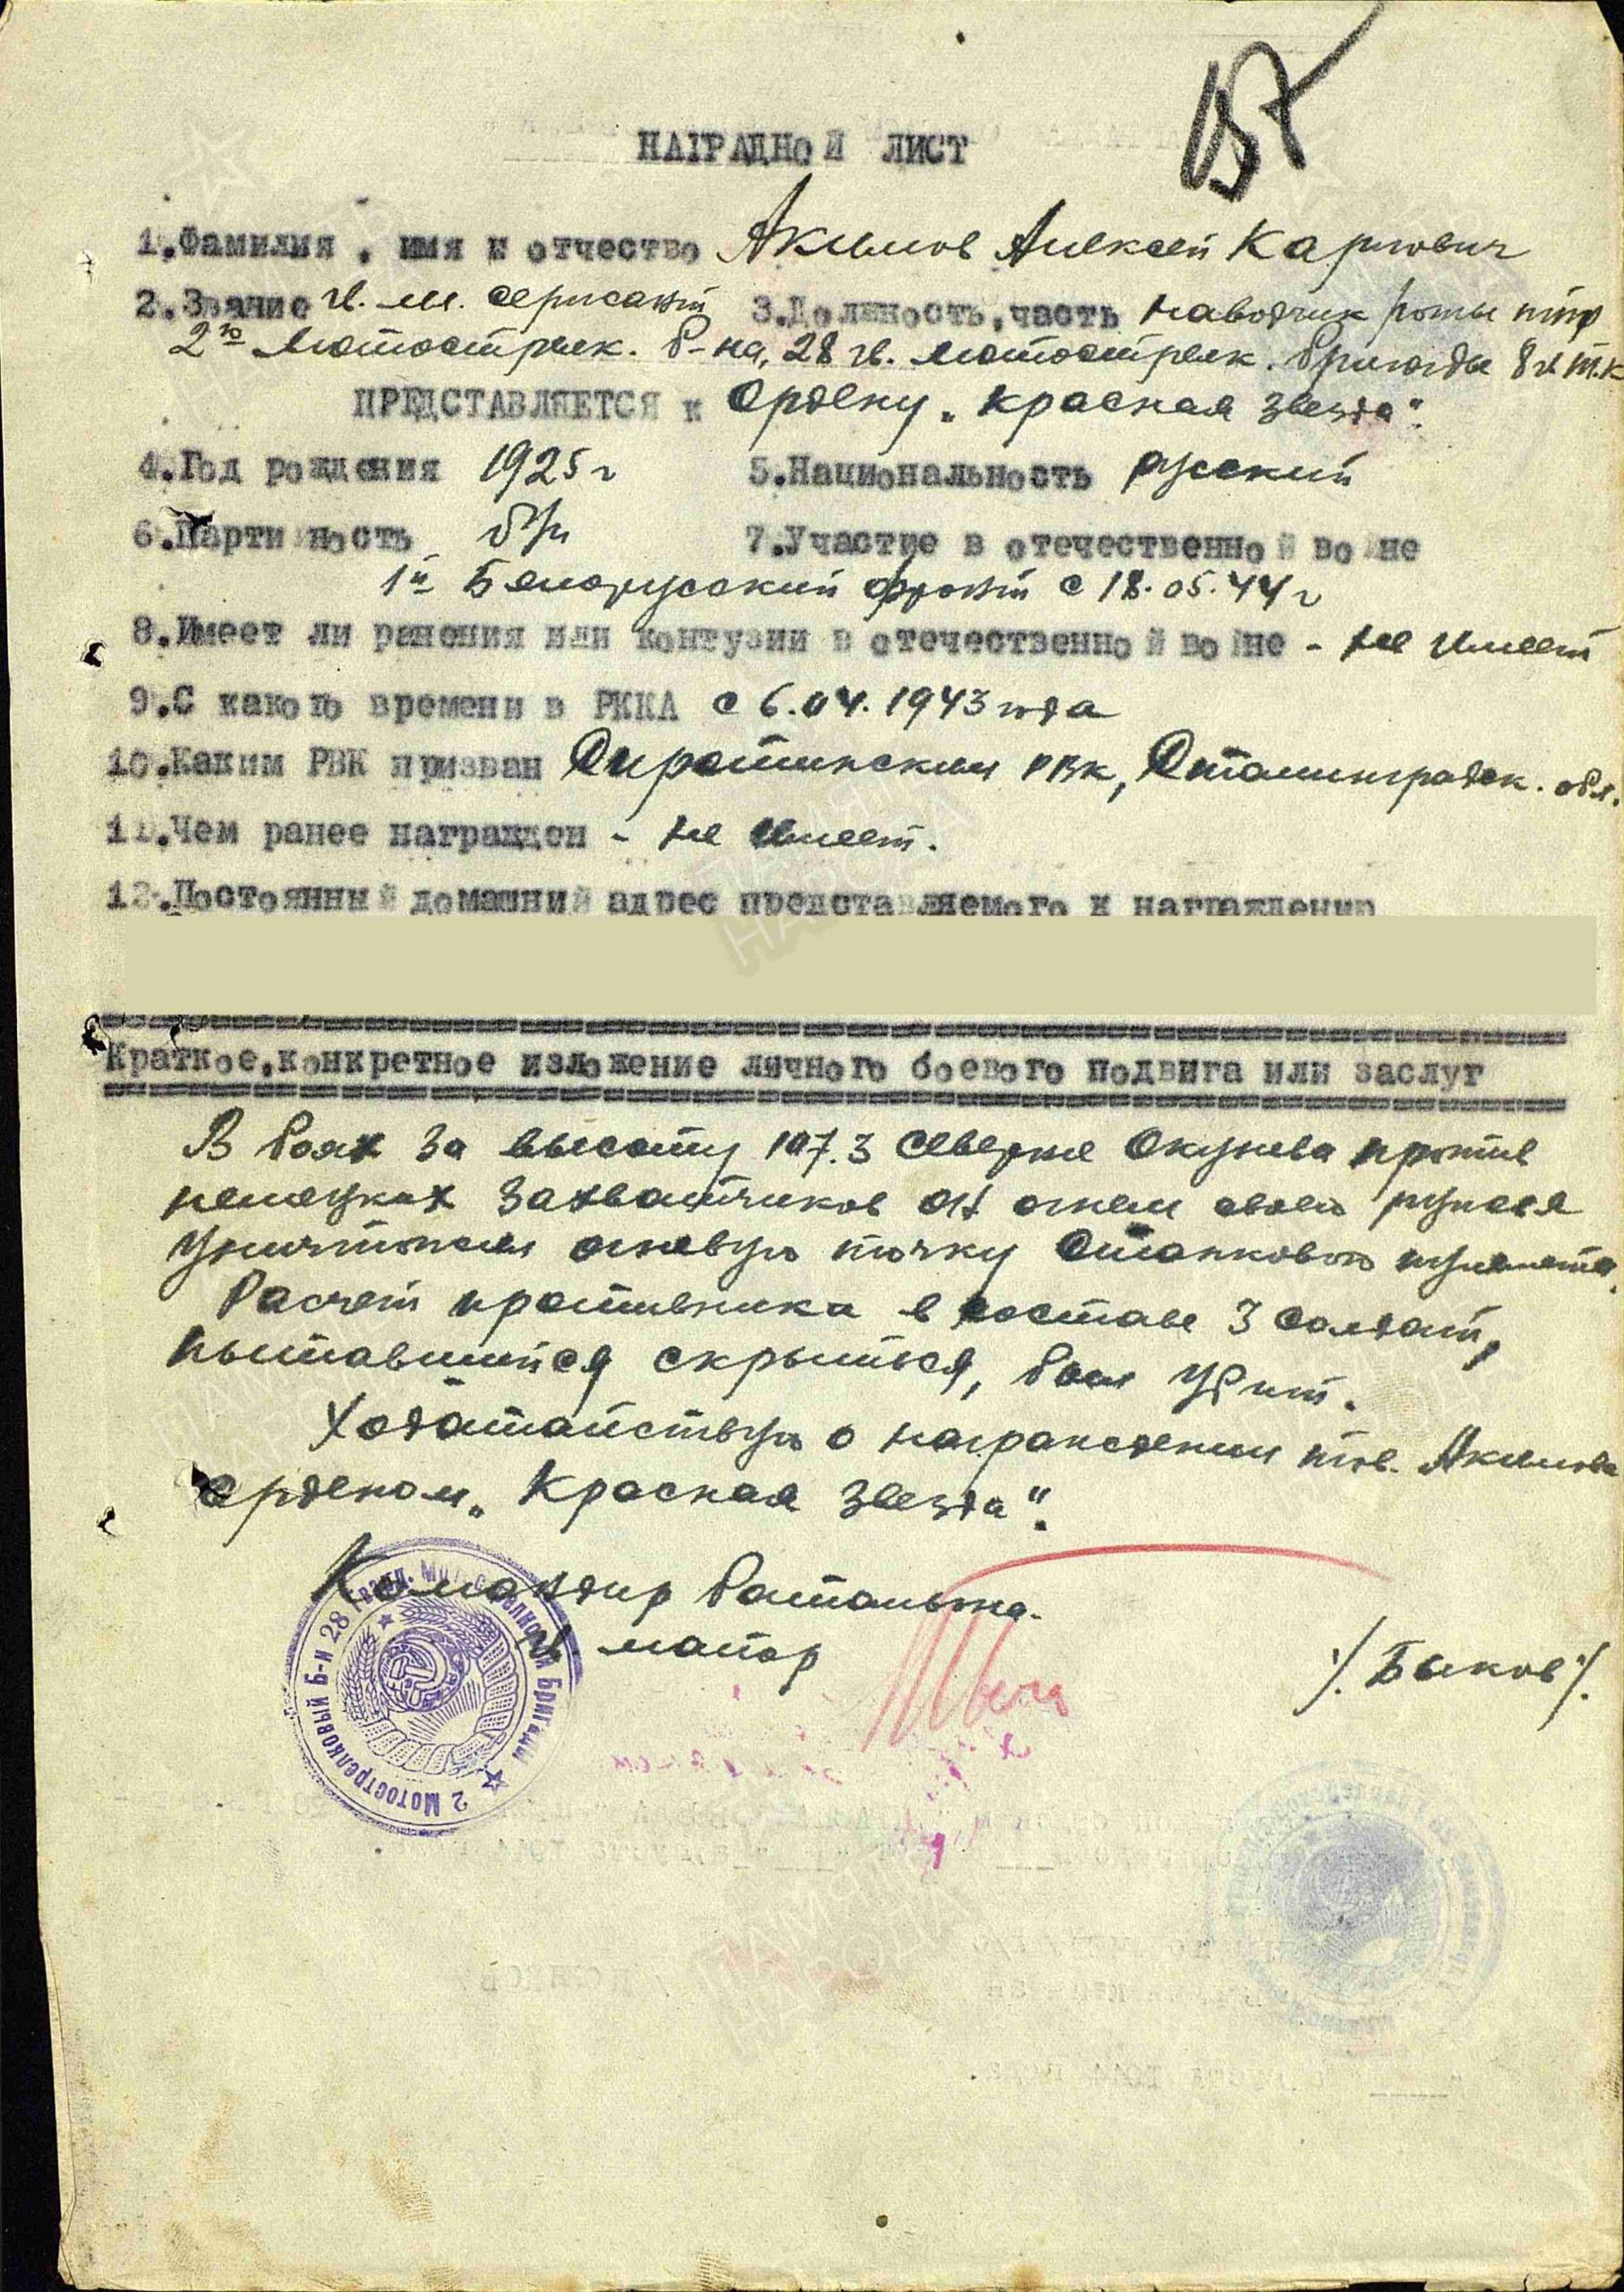 НАГРАДНОЙ ЛИСТ
1.Фамилия, имя и отчество Акимов Алексей Карпович
2.Звание гв. мл. сержант 3.Должность, часть наводчик роты птр
2го мотострелк. б-на, 28 гв. мотострелк. бригады 8 гв т.к
ПРЕДСТАВЛЯЕТСЯ к Ордену „Красная Звезда".
4.Год рождения 1925 г 5.Национальность русский
6.Партийность б/п 7.Участие в отечественной войне
1й Белорусский фронт с 18.05.44 г
8.Имеет ли ранения или контузии в отечественной войне - не имеет
9.С какого времени в РККА с 6.04.1943 года
10.Каким РВК призван Сиротинским РВК, Сталинградск. обл.
11.Чем ранее награжден - не имеет.
12.Постоянный домашний адрес представляемого к награждению
Краткое, конкретное изложение личного боевого подвига или заслуг
В боях за высоту 197.3 севернее Окунева против
немецких захватчиков он огнем своего ружья
уничтожил огневую точку станкового пулемета.
Расчет противника в составе 3 солдат,
пытавшийся скрыться, был убит.
Ходатайствую о награждении тов. Акимова
орденом „Красная Звезда".
Командир батальона
гв. майор /. Быков /.
2 Мотострелковый Б-н 28 Гвард. Мотострелковой Бригады
ПАМЯТЬ НАРОДА